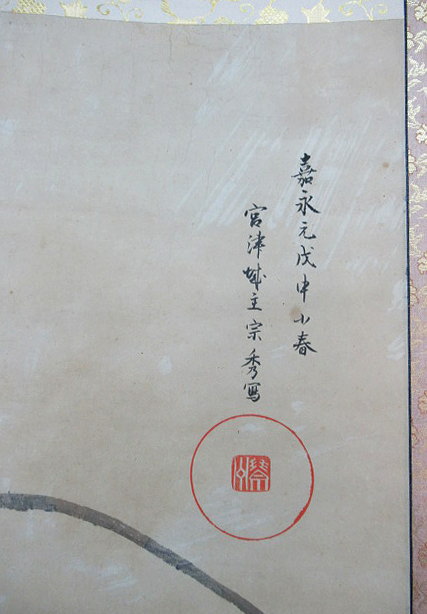 嘉永元戊申小春
宮津城主宗秀写